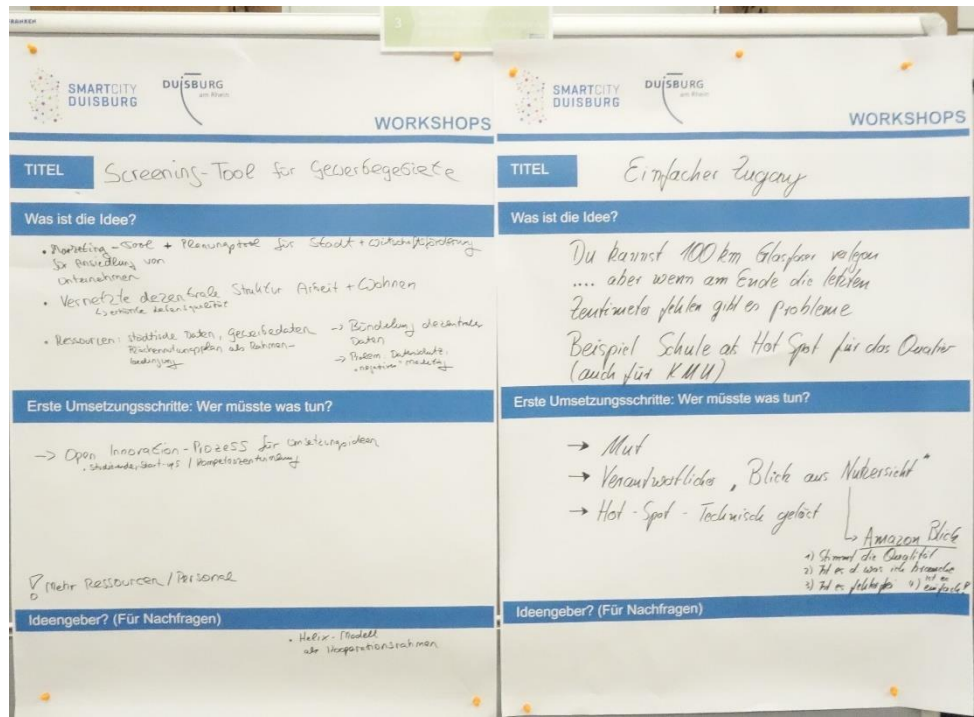 3
SMARTCITY
DUISBURG
DUISBURG
am Rhein
WORKSHOPS
TITEL
Screening-Tool für Gewerbegebiete
Was ist die Idee?
• Marketing-Tool + Planungstool für Stadt + Wirtschaftsförderung
für Ansiedlung von
Unternehmen
• Vernetzte dezentrale Struktur Arbeit + Wohnen
↳ erhöhte Lebensqualität
• Ressourcen: städtische Daten, Gewerbedaten
Flächennutzungsplan als Rahmen-
bedingung
→ Bündelung dezentraler
Daten
→ Problem: Datenschutz,
"negatives" Marketing
Erste Umsetzungsschritte: Wer müsste was tun?
→ Open Innovation-Prozess für Umsetzungsideen
• Studierende, Start-ups /
! Mehr Ressourcen / Personal
Ideengeber? (Für Nachfragen)
• Helix-Modell
als Kooperationsrahmen
SMARTCITY
DUISBURG
DUISBURG
am Rhein
WORKSHOPS
TITEL
Einfacher Zugang
Was ist die Idee?
Du kannst 100 km Glasfaser verlegen
.... aber wenn am Ende die letzten
Zentimeter fehlen gibt es Probleme
Beispiel Schule als Hot Spot für das Quartier
(auch für KMU)
Erste Umsetzungsschritte: Wer müsste was tun?
→ Mut
→ Verantwortliches „Blick aus Nutzersicht"
→ Hot-Spot-Technisch gelöst
↳ Amazon Blick
1) Stimmt die Qualität
2) Ist es d was ich brauche
3) Ist es fehlerfrei 4) ist es
einfach?
Ideengeber? (Für Nachfragen)